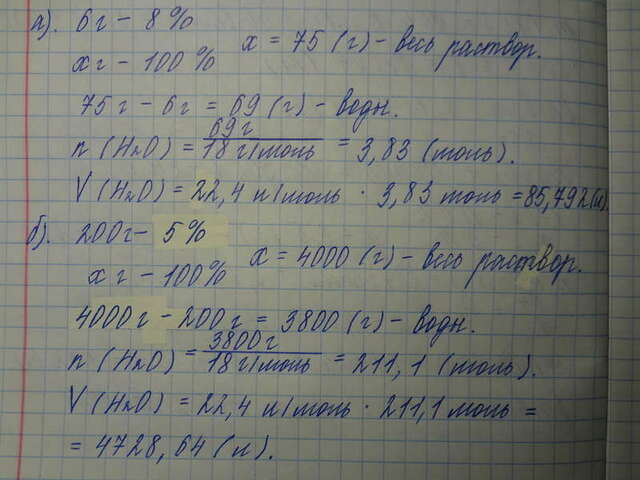 а). 6г - 8%
хг - 100%
х = 75 (г) - весь раствор.
75г - 6г = 69 (г) - воды.
n (H2O) = 69г / 18 г/моль = 3,83 (моль).
V (H2O) = 22,4 л/моль · 3,83 моль = 85,792(л).
б). 200г - 5%
х г - 100%
х = 4000 (г) - весь раствор.
4000г - 200г = 3800 (г) - воды.
n (H2O) = 3800г / 18 г/моль = 211,1 (моль).
V (H2O) = 22,4 л/моль · 211,1 моль =
= 4728,64 (л).